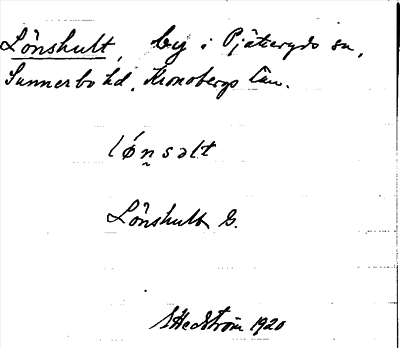 Lönshult, by i Pjätteryds sn,
Sunnerbo hd, Kronobergs län.
lǿn̰səlt
Lönshult G.
S Hedström 1920